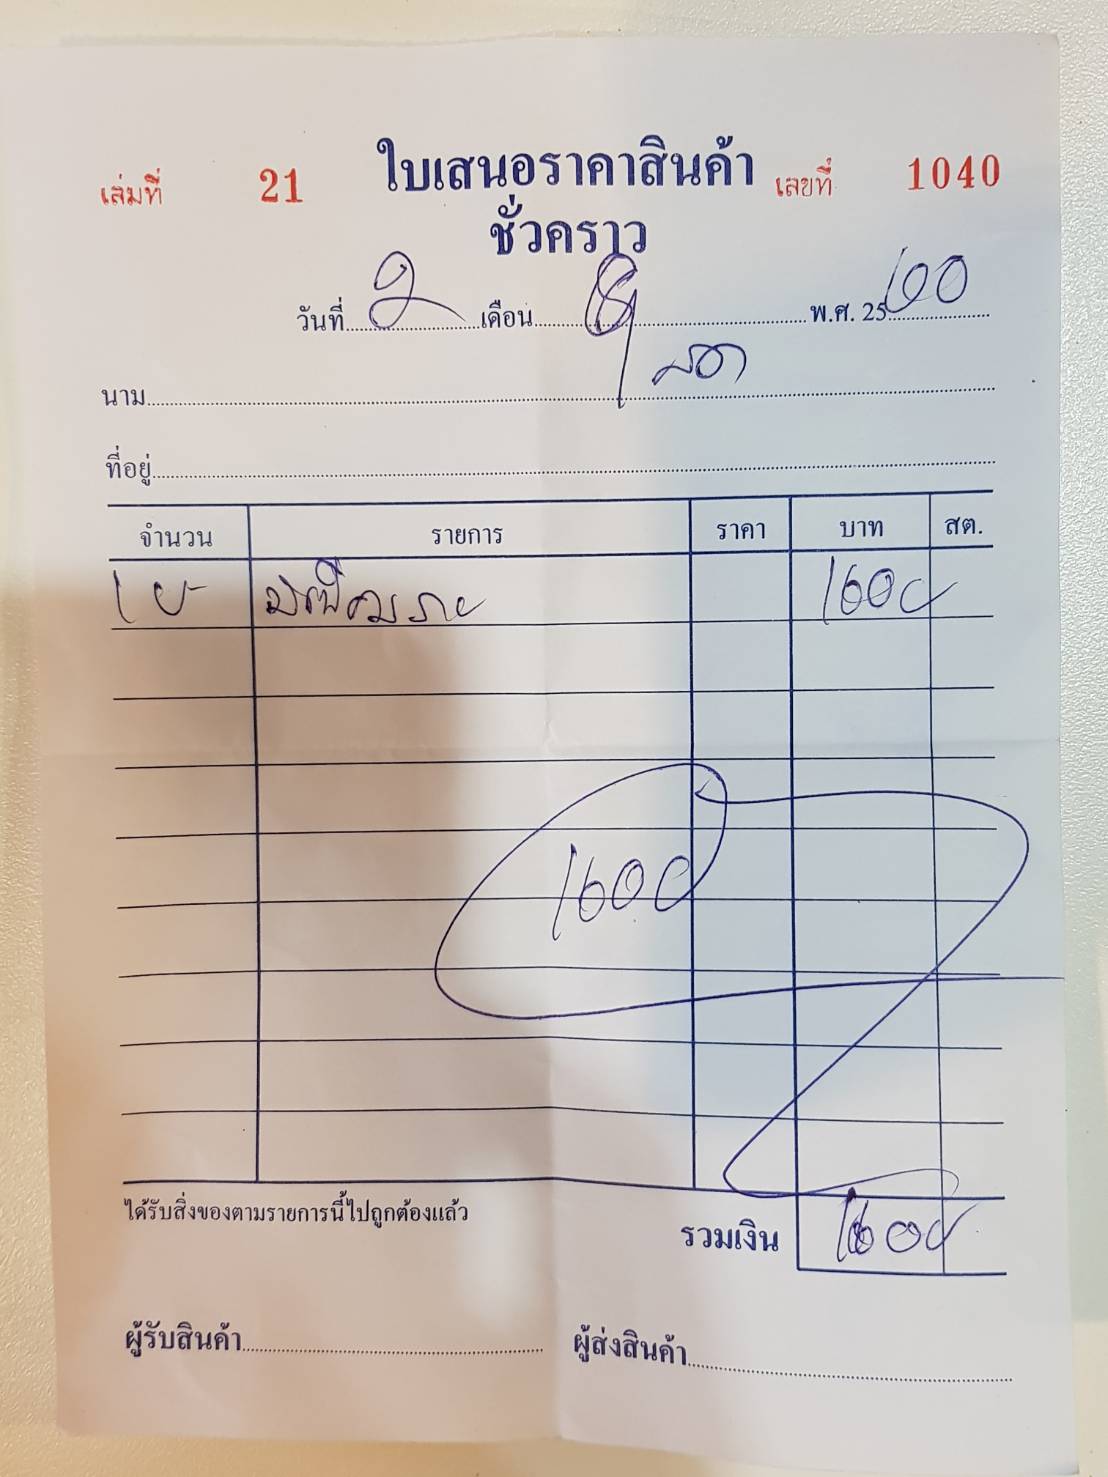 เล่มที่ 21 ใบเสนอราคาสินค้า เลขที่ 1040
ชั่วคราว
วันที่ 2 เดือน 8 พ.ศ. 25 60
สด
นาม
ที่อยู่
จำนวน รายการ ราคา บาท สต.
1 1600
1600
ได้รับสิ่งของตามรายการนี้ไปถูกต้องแล้ว
รวมเงิน 1600
ผู้รับสินค้า ผู้ส่งสินค้า